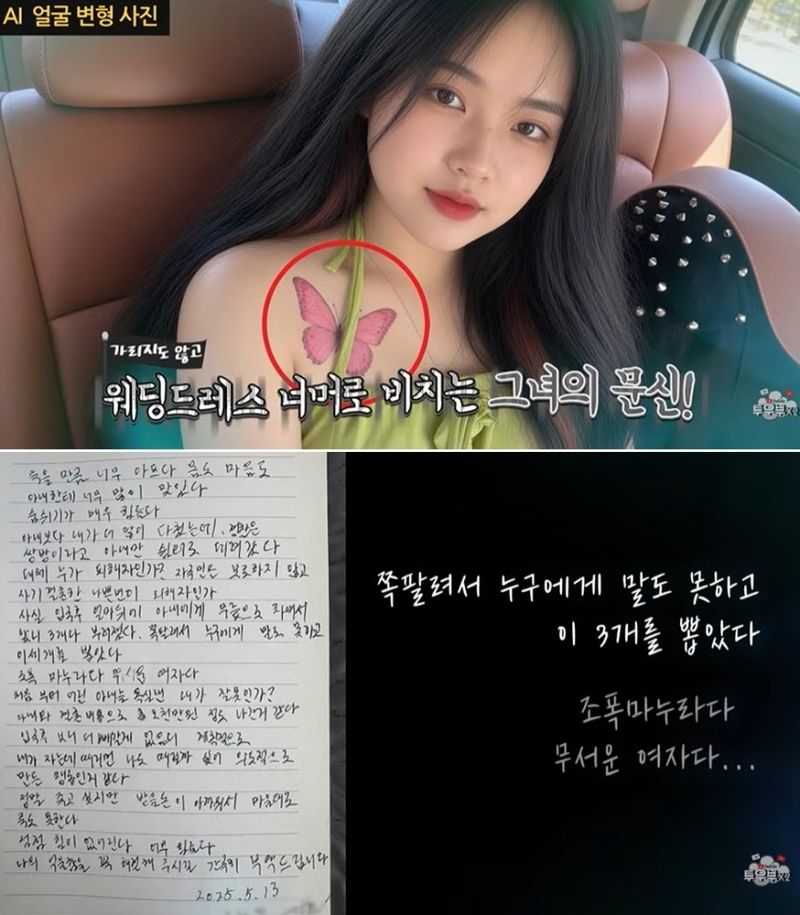 AI 얼굴 변형 사진
가리지도 않고
웨딩드레스 너머로 비치는 그녀의 문신!
투우부x2
죽을 만큼 너무 아프다 몸도 마음도
아내한테 너무 많이 맞았다
숨쉬기가 매우 힘들다
아내보다 내가 더 많이 다쳤는데, 경찰은
쌍방이라고 아내만 쉼터로 데려갔다
대체 누가 피해자인가? 자국민은 보호하지 않고
사기결혼한 나쁜년이 피해자인가
사실 입국후 얼마뒤 아내에게 무릎으로 차여서
앞니 3개나 부러졌다. 쪽팔려서 누구에게 말도 못하고
이세개를 뽑았다
조폭 마누라다 무서운 여자다
처음 부터 어린 아내를 욕심낸 내가 잘못인가?
아내와 결혼비용으로 총 오천만원 정도 나간거 같다
입국후 보니 더 빼갈게 없으니 계획적으로
내가 자는데 때리면 나도 때릴까 싶어 의도적으로
만든 행동인거 같다
정말 죽고 싶지만 받을돈이 아까워서 마음대로
죽도 못한다
점점 힘이 없어진다 너무 힘들다
나의 억울함을 꼭 해결해 주시길 간곡히 부탁드립니다
2025.5.13
쪽팔려서 누구에게 말도 못하고
이 3개를 뽑았다
조폭마누라다
무서운 여자다...
투우부x2